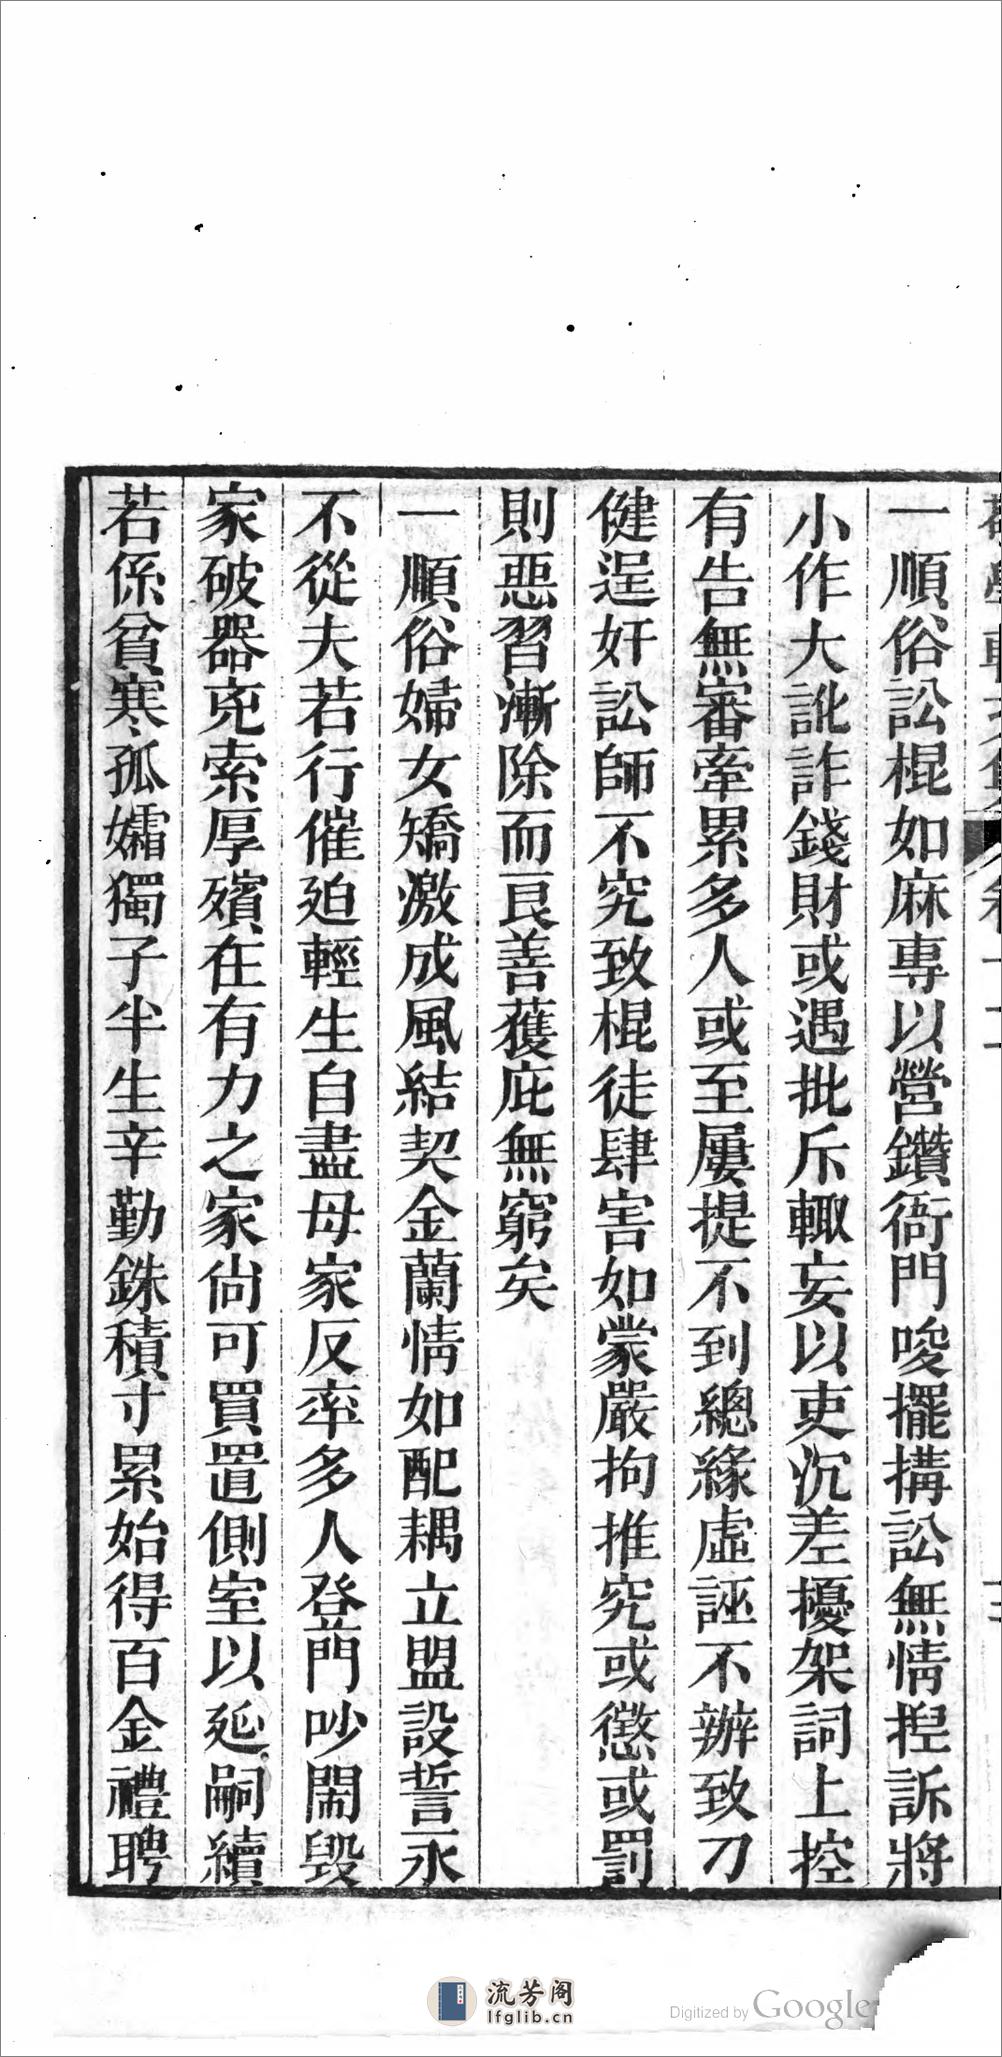 一順俗訟棍如麻專以營鑽衙門唆擺搆訟無情捏訴將
小作大訛詐錢財或遇批斥輙妄以吏沉差擾架詞上控
有告無審牽累多人或至屢提不到總緣虛誣不辦致刀
健逞奸訟師不究致棍徒肆害如蒙嚴拘推究或懲或罰
則惡習漸除而良善獲庇無窮矣
一順俗婦女矯激成風結契金蘭情如配耦立盟設誓永
不從夫若行催廹輕生自盡母家反率多人登門吵鬧毀
家破器兊索厚殯在有力之家尙可買置側室以延嗣續
若係貧寒孤孀獨子半生辛勤銖積寸累始得百金禮聘
流芳阁
lfglib.cn
Digitized by Google